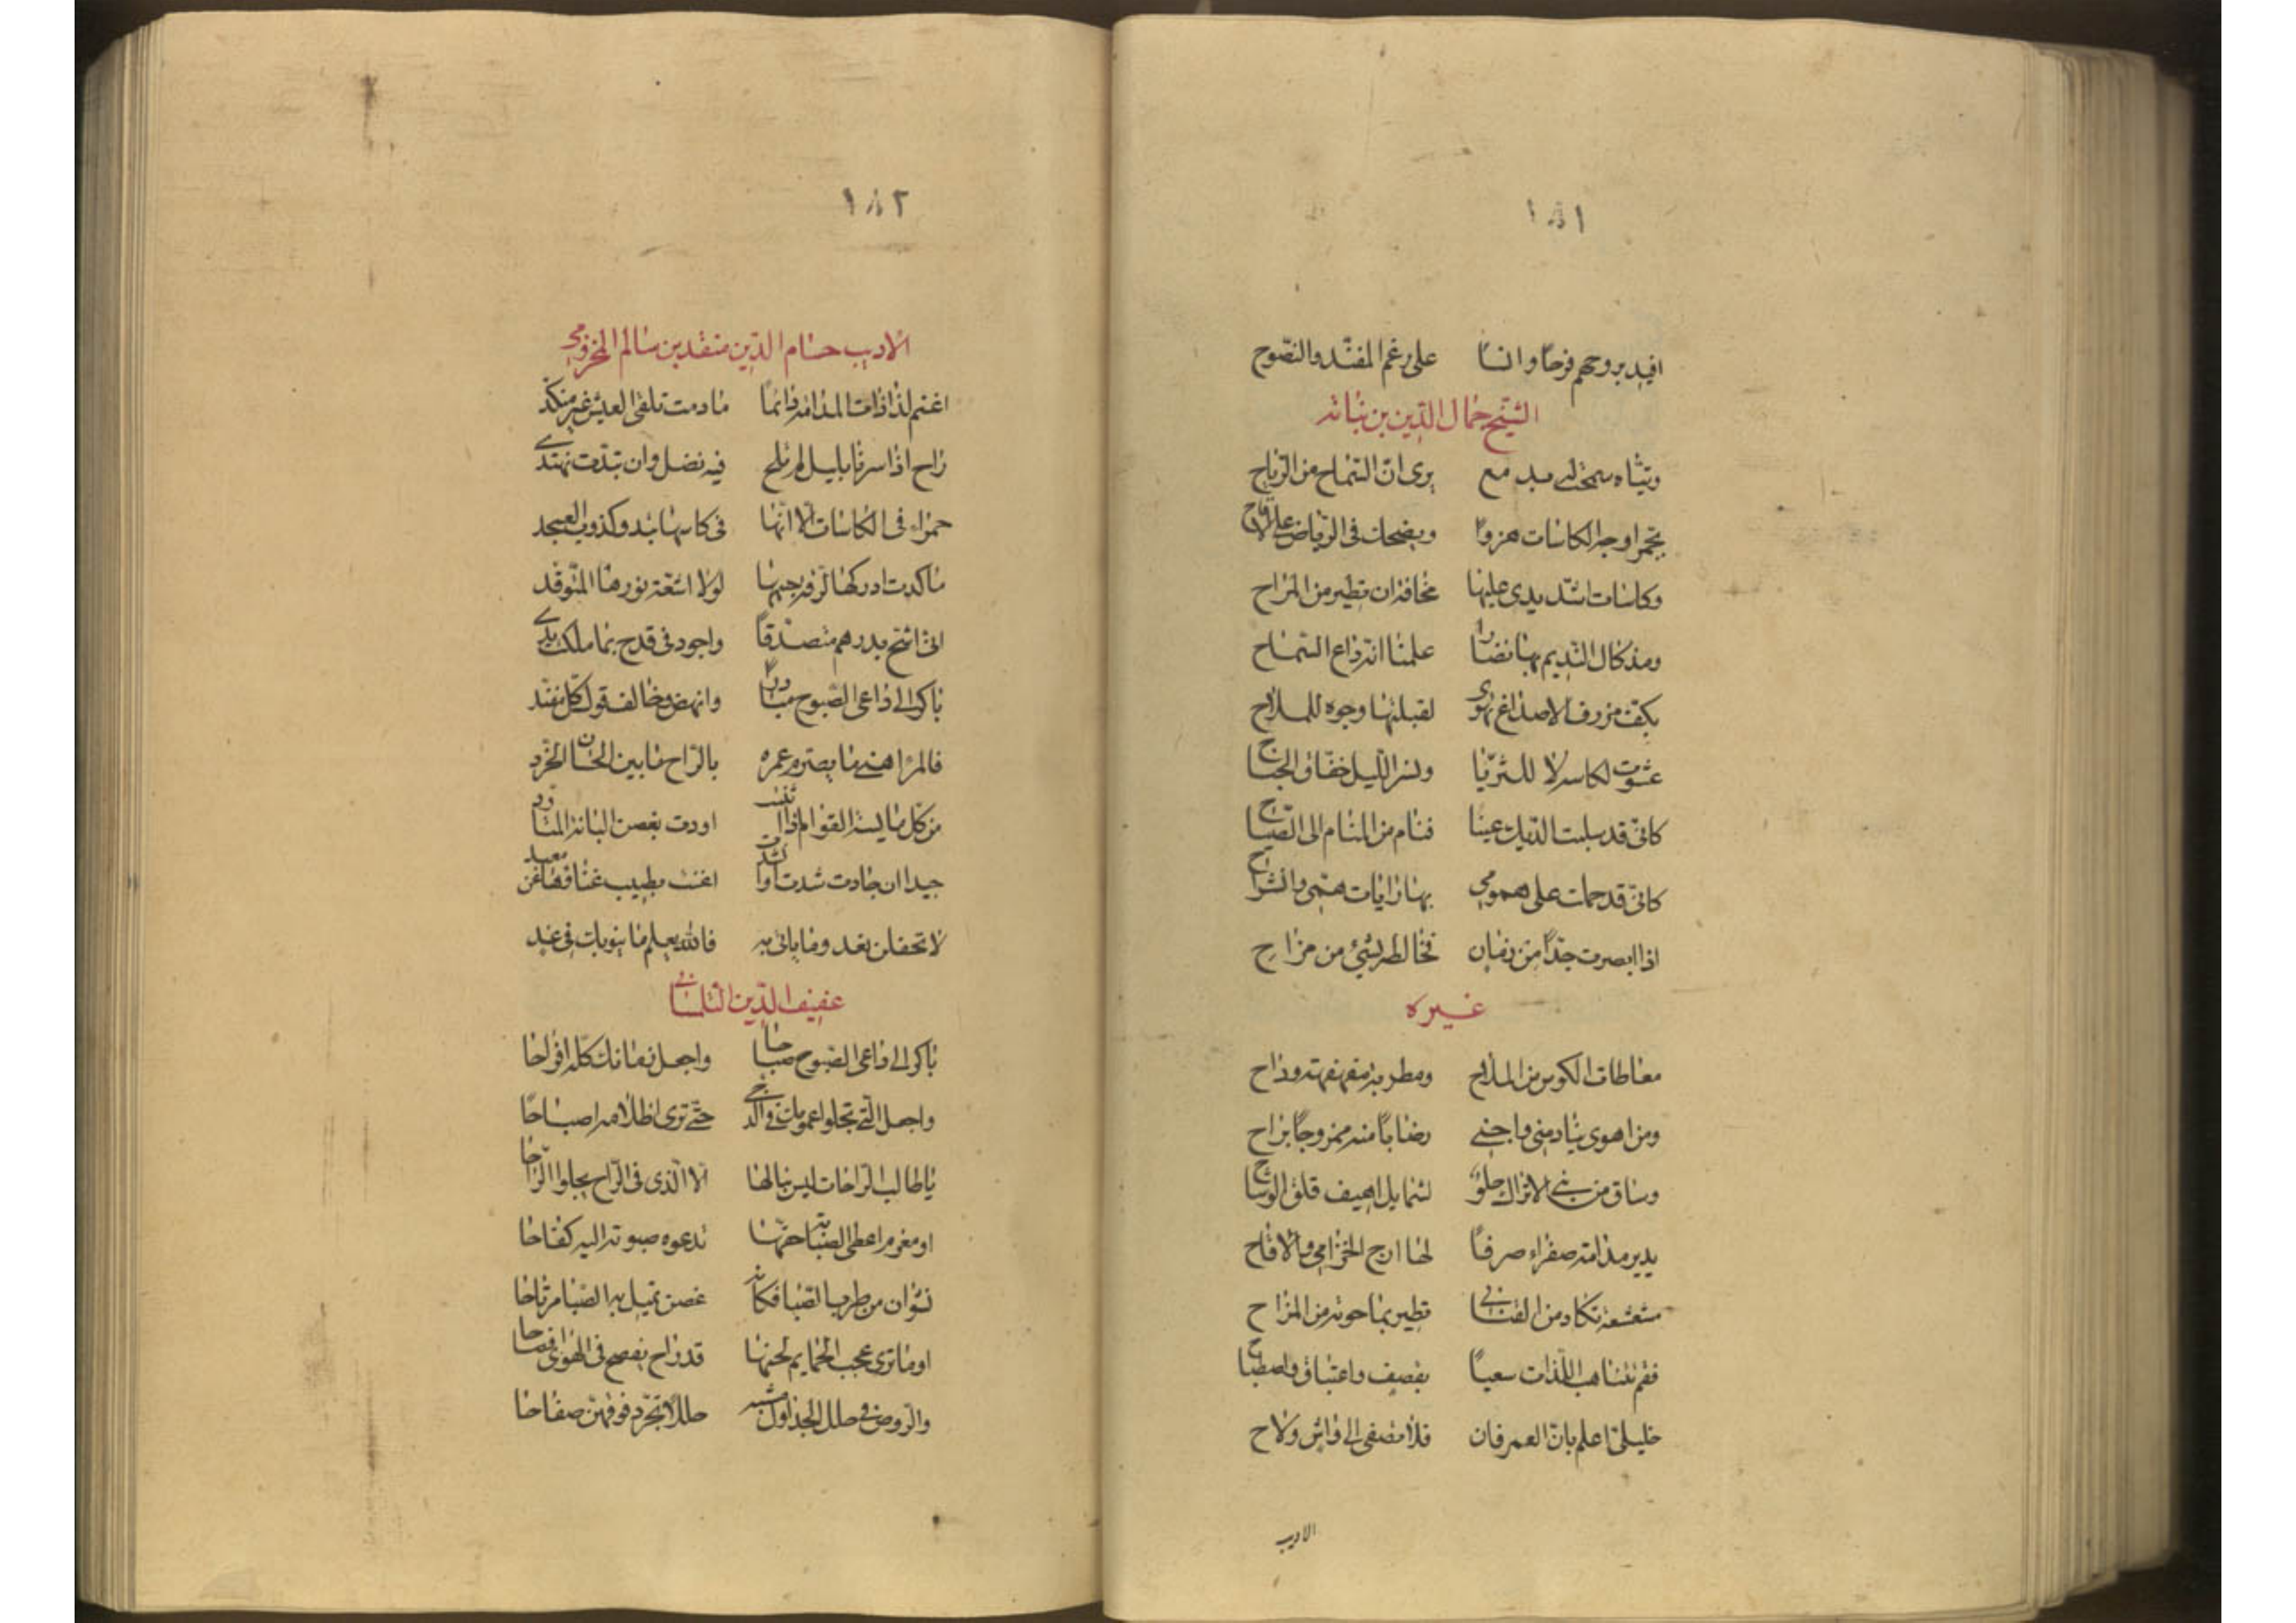 ١٨١
افيد بروحهم فرحًا وانسًا على رغم المفنّد والنصّوح
الشيخ جمال الدين بن نباته
وتيّاه سمحت له بدمع يرى انّ السّماح من الرّباح
يحمر اوجه الكاسات هزوًا ويضحك في الرياض على الاقاح
وكاسات اشدّ يدي عليها مخافة ان تطير من المراح
ومذ كال النديم بها نضارًا علمنا انّه داع السّماح
بكفّ مزرفن الاصداغ تهوى لقبلتها وجوه للملاح
عشوت لكاسه لا للثريّا ونسر الليل خفّاق الجناح
كانّي قد سلبت الديك عينا فنام من المنام الى الصّباح
كانّي قد حملت على همومي بها رايات همّي وانشراح
اذا ابصرت جدًا من زمان فخالطه بشيء من مزاح
غيره
معاطات الكوس من الملاح ومطربة مهفهفة وراح
ومن اهوى ينادمني واجني رضابًا منه ممزوجًا براح
وساق من بني الاتراك حلو شمايل اهيف قلق الوشاح
يدير مدامة صفراء صرفًا لها ارج الخزامي والاقاح
مشعشعة تكاد من القناني تطير بما حوته من المراح
فقم نتناهب اللّذات سعيًا بقصف واغتباق واصطباح
خليلي اعلم بانّ العمر فان فلا تصغى الى واش ولاح
الاديب
١٨٢
الاديب حسام الدين منقد بن سالم المخزومي
اغنم لذاذات المدامة دائمًا مادمت تلقى العيش غير منكد
راح اذا سرنا بليل لم تلح فيه نضل وان تبدّت نهتدي
حمراء في الكاسات الا انّها في كاسها تبدو كذوب العسجد
ماكدت ادركها لرقة جسمها لولا اشعّة نورها المتوقد
انّي اشح بدرهم متصدقًا واجود في قدح بما ملكت يدي
باكر الى داعى الصّبوح مبادرًا وانهض وخالف قول كلّ مفند
فالمرء اهنى ما يصرم عمره بالرّاح ما بين الحسان الخرّد
من كلّ مايسة القوام اذا انثنت اودت بغصن البانة المتاود
جيدا ان جادت شدت او انشدت اغنت بطيب غناها عن معبد
لا تحفلن بغد وما ياتي به فالله يعلم ما ينوبك في غد
عفيف الدّين التلمساني
باكر الى داعى الصّبوح صباحا واجعل زمانك كلّه افراحا
واجعل التي تجلوا همومك في الدجى حتّى ترى اظلامه اصباحًا
يا طالب الراحات ليس ينالها الا الّذي في الرّاح يجلوا الرّاحا
او مغرم اعطى الصّبابة حقّها تدعوه صبوته اليه كفاحا
نشوان من طرب الصّبا فكانه غصن تميل به الصّبا مرتاحا
او ما ترى عجب الحمايم لحنها قد راح يفصح في الهوى افصاحا
والروض في حلل الجداول مشبه حللًا تجرّد فوقهنّ صفاحا